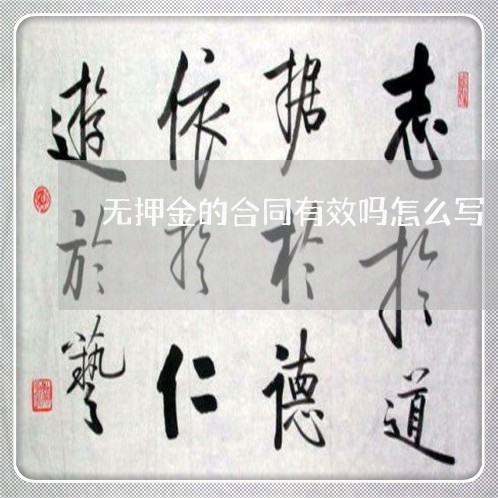 志於道
据於德
依於仁
遊於藝
无押金的合同有效吗怎么写